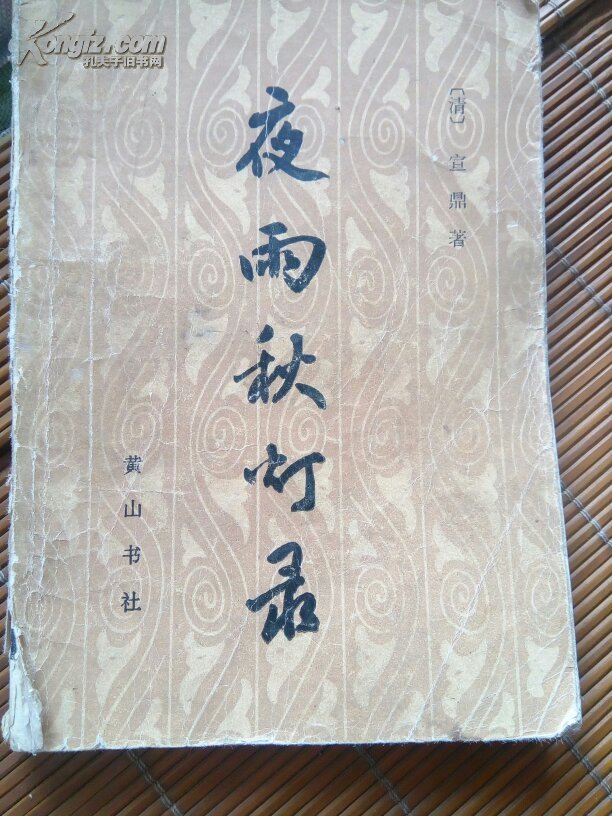 Kongfz.com
孔夫子旧书网
〔清〕宣鼎著
夜雨秋灯录
黄山书社